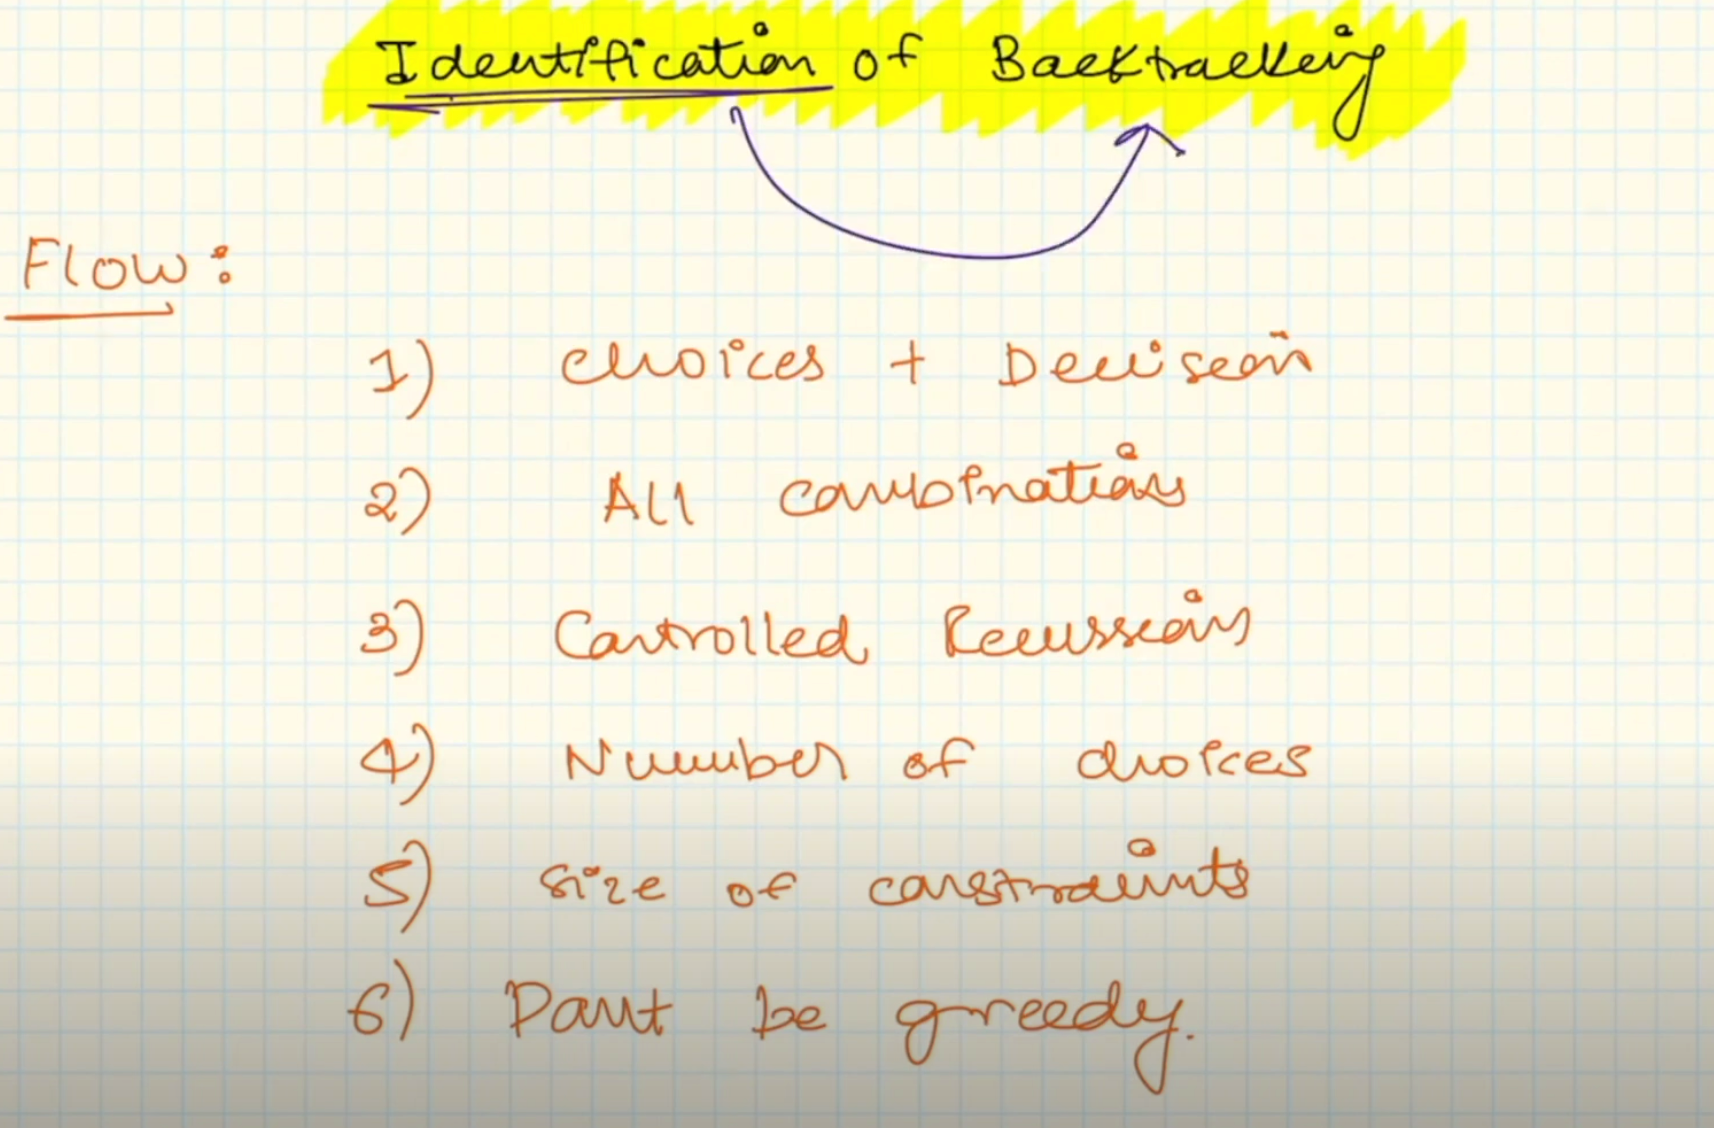 Identification of Backtracking
Flow:
1) choices + Decision
2) All combinations
3) Controlled Recursion
4) Number of choices
5) size of constraints
6) Dont be greedy.